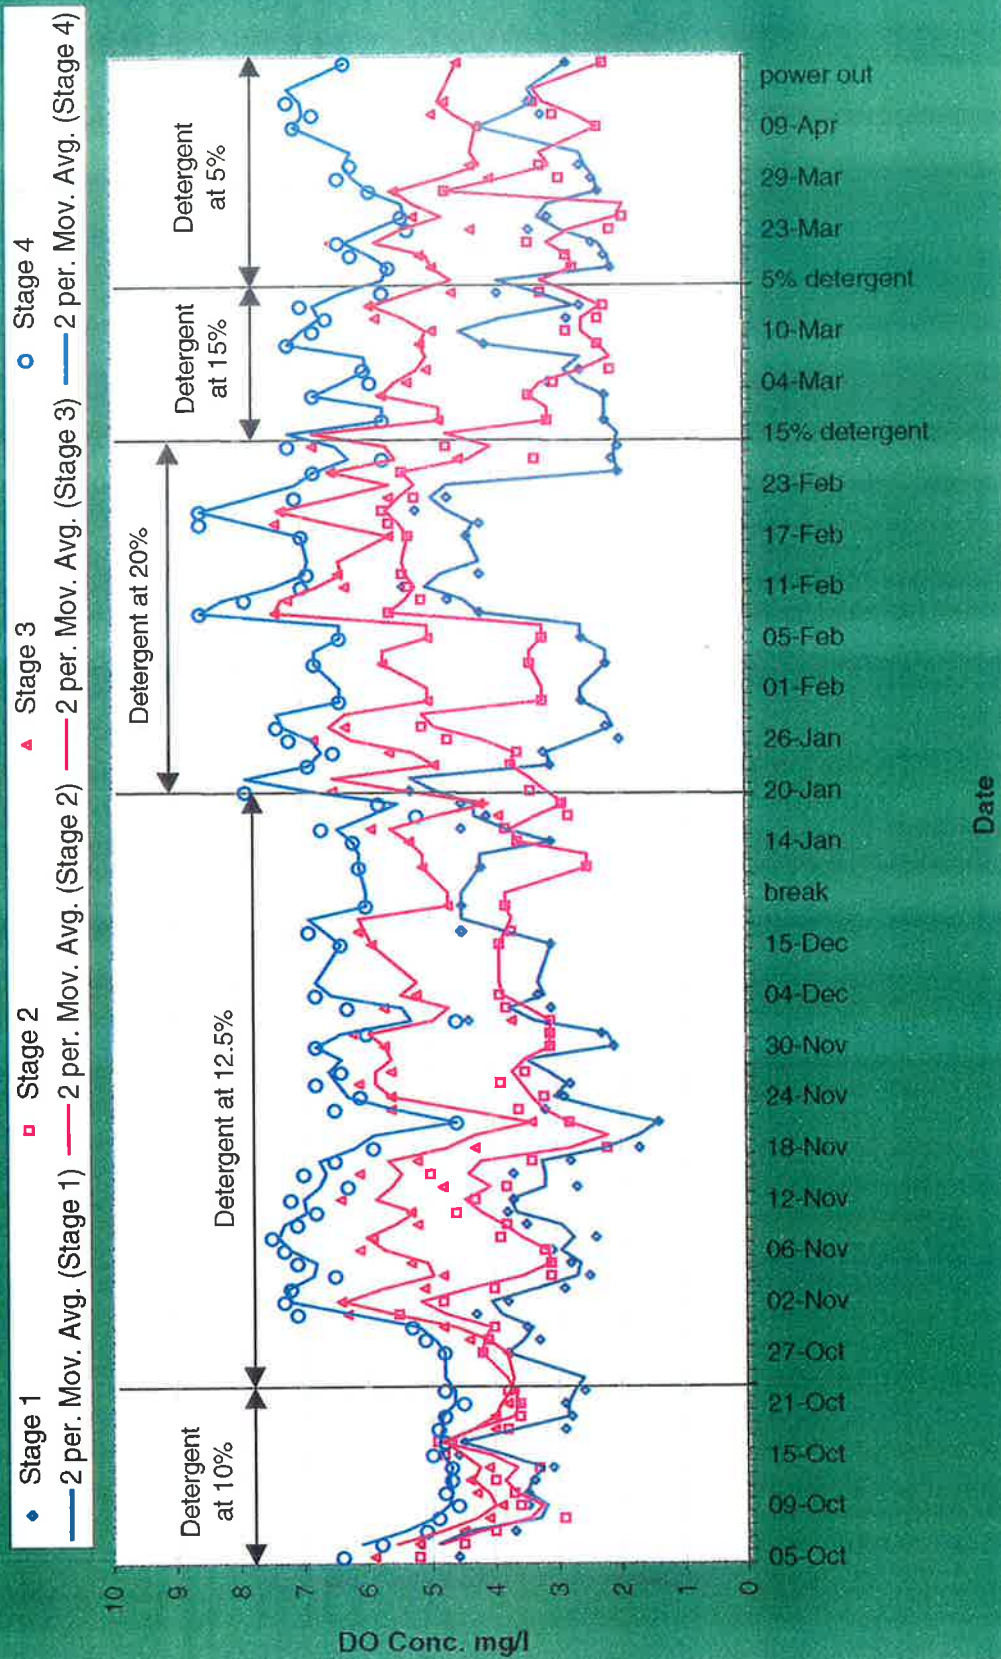 Stage 1
Stage 2
Stage 3
Stage 4
2 per. Mov. Avg. (Stage 1)
2 per. Mov. Avg. (Stage 2)
2 per. Mov. Avg. (Stage 3)
2 per. Mov. Avg. (Stage 4)
Detergent
at 10%
Detergent at 12.5%
Detergent at 20%
Detergent
at 15%
Detergent
at 5%
DO Conc. mg/l
10
9
8
7
6
5
4
3
2
1
0
05-Oct
09-Oct
15-Oct
21-Oct
27-Oct
02-Nov
06-Nov
12-Nov
18-Nov
24-Nov
30-Nov
04-Dec
15-Dec
break
14-Jan
20-Jan
26-Jan
01-Feb
05-Feb
11-Feb
17-Feb
23-Feb
15% detergent
04-Mar
10-Mar
5% detergent
23-Mar
29-Mar
09-Apr
power out
Date